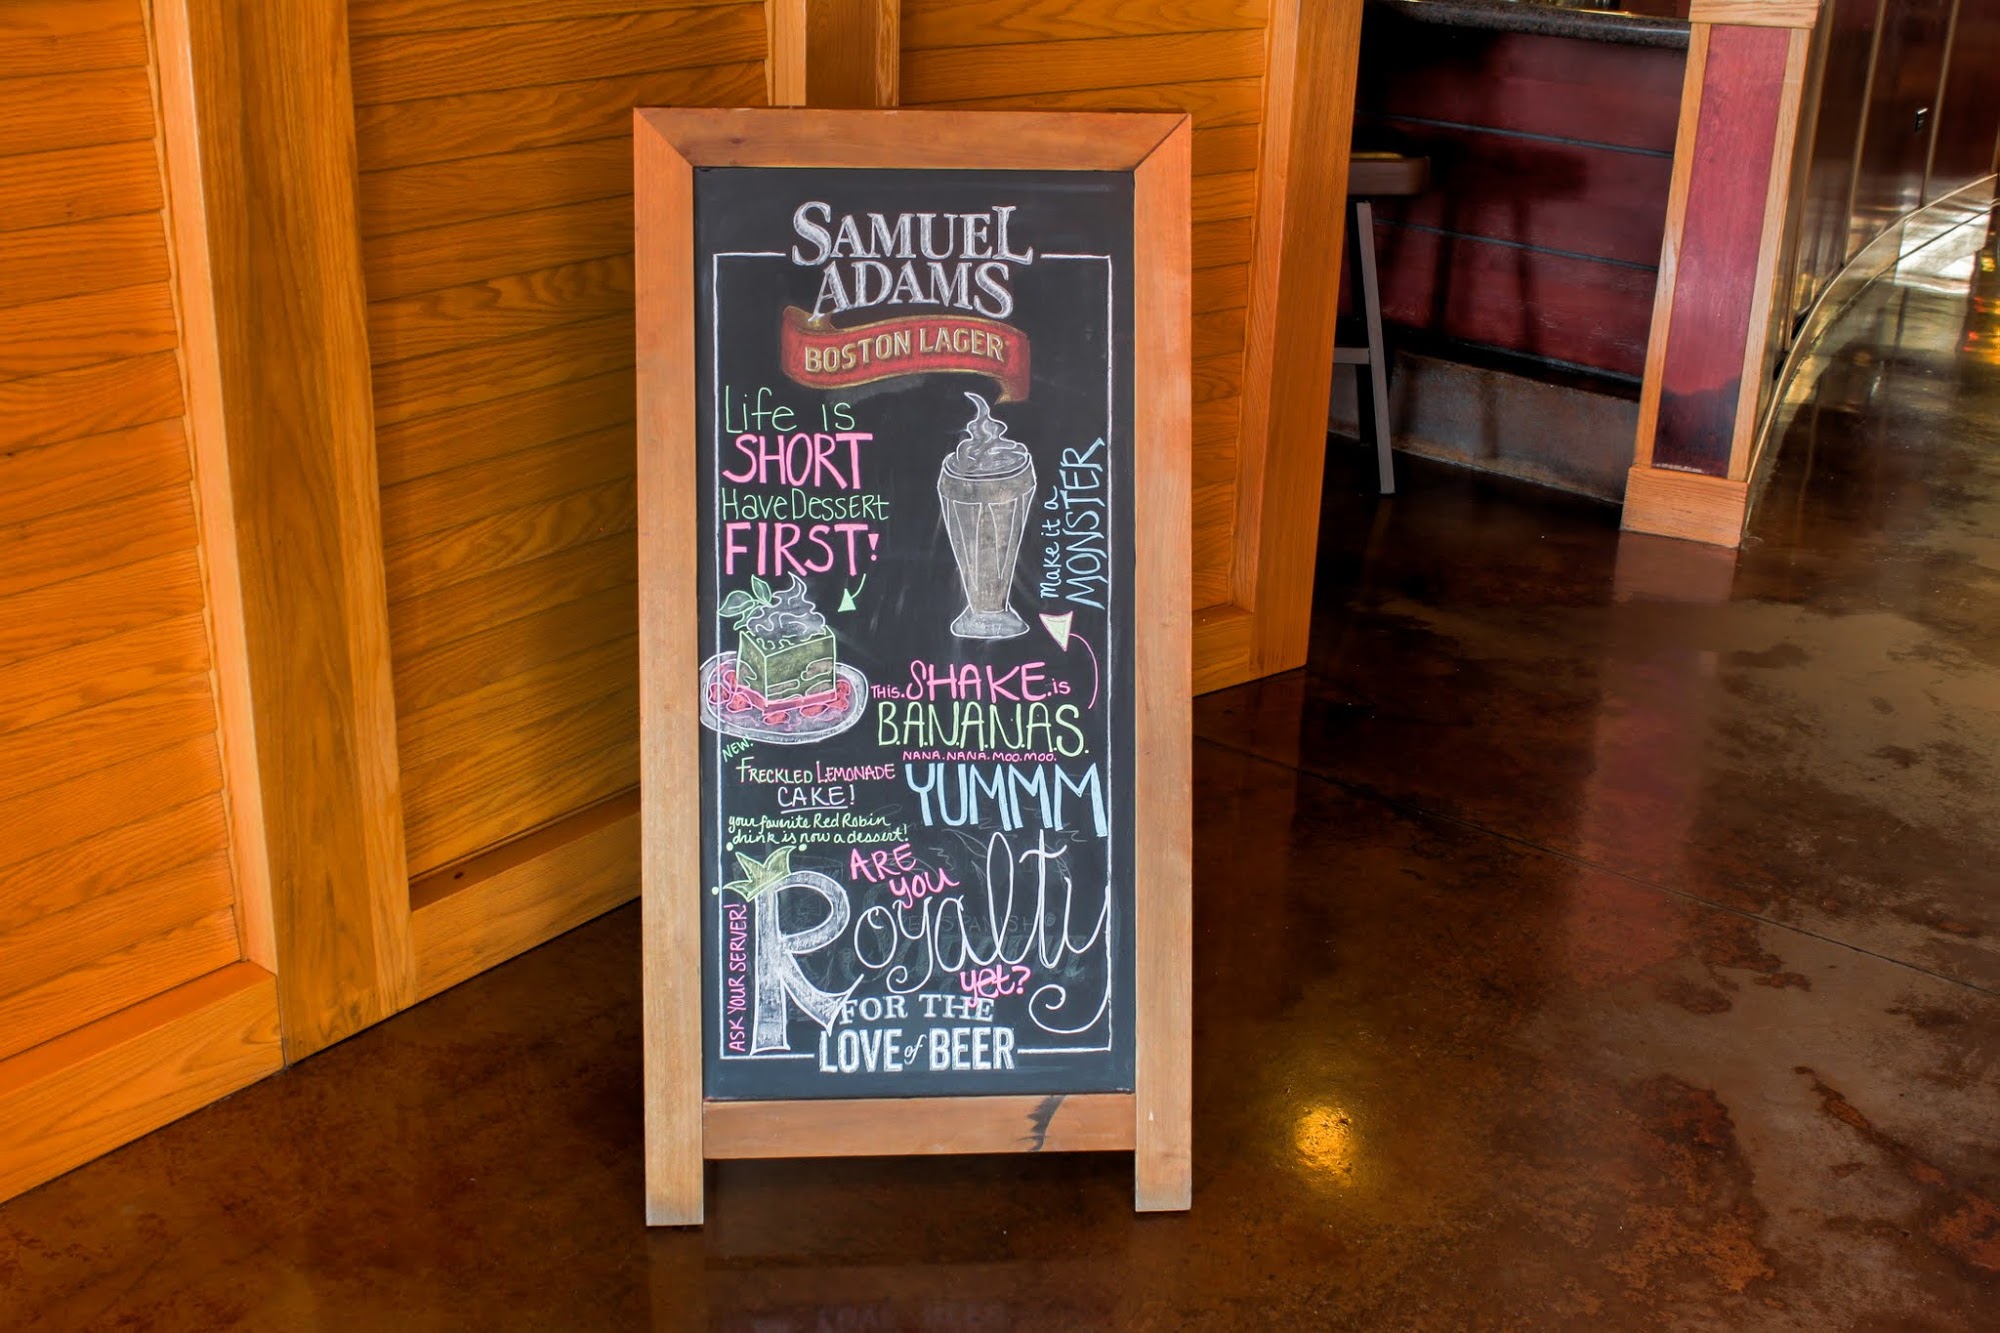 SAMUEL
ADAMS
BOSTON LAGER
Life is
SHORT
Have Dessert
FIRST!
Make it a
MONSTER
THIS. SHAKE. is
B.A.N.A.N.A.S.
NANA. NANA. MOO. MOO.
YUMMM
NEW!
FRECKLED LEMONADE
CAKE!
your favorite Red Robin
drink is now a dessert!
ARE
YOU
Royalty
yet?
ASK YOUR SERVER!
FOR THE
LOVE of BEER